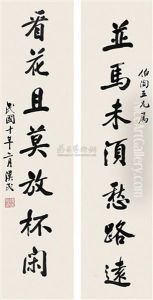 伯陶五兄屬
並馬未須愁路遠
看花且莫放杯閑
民國十年二月漢民